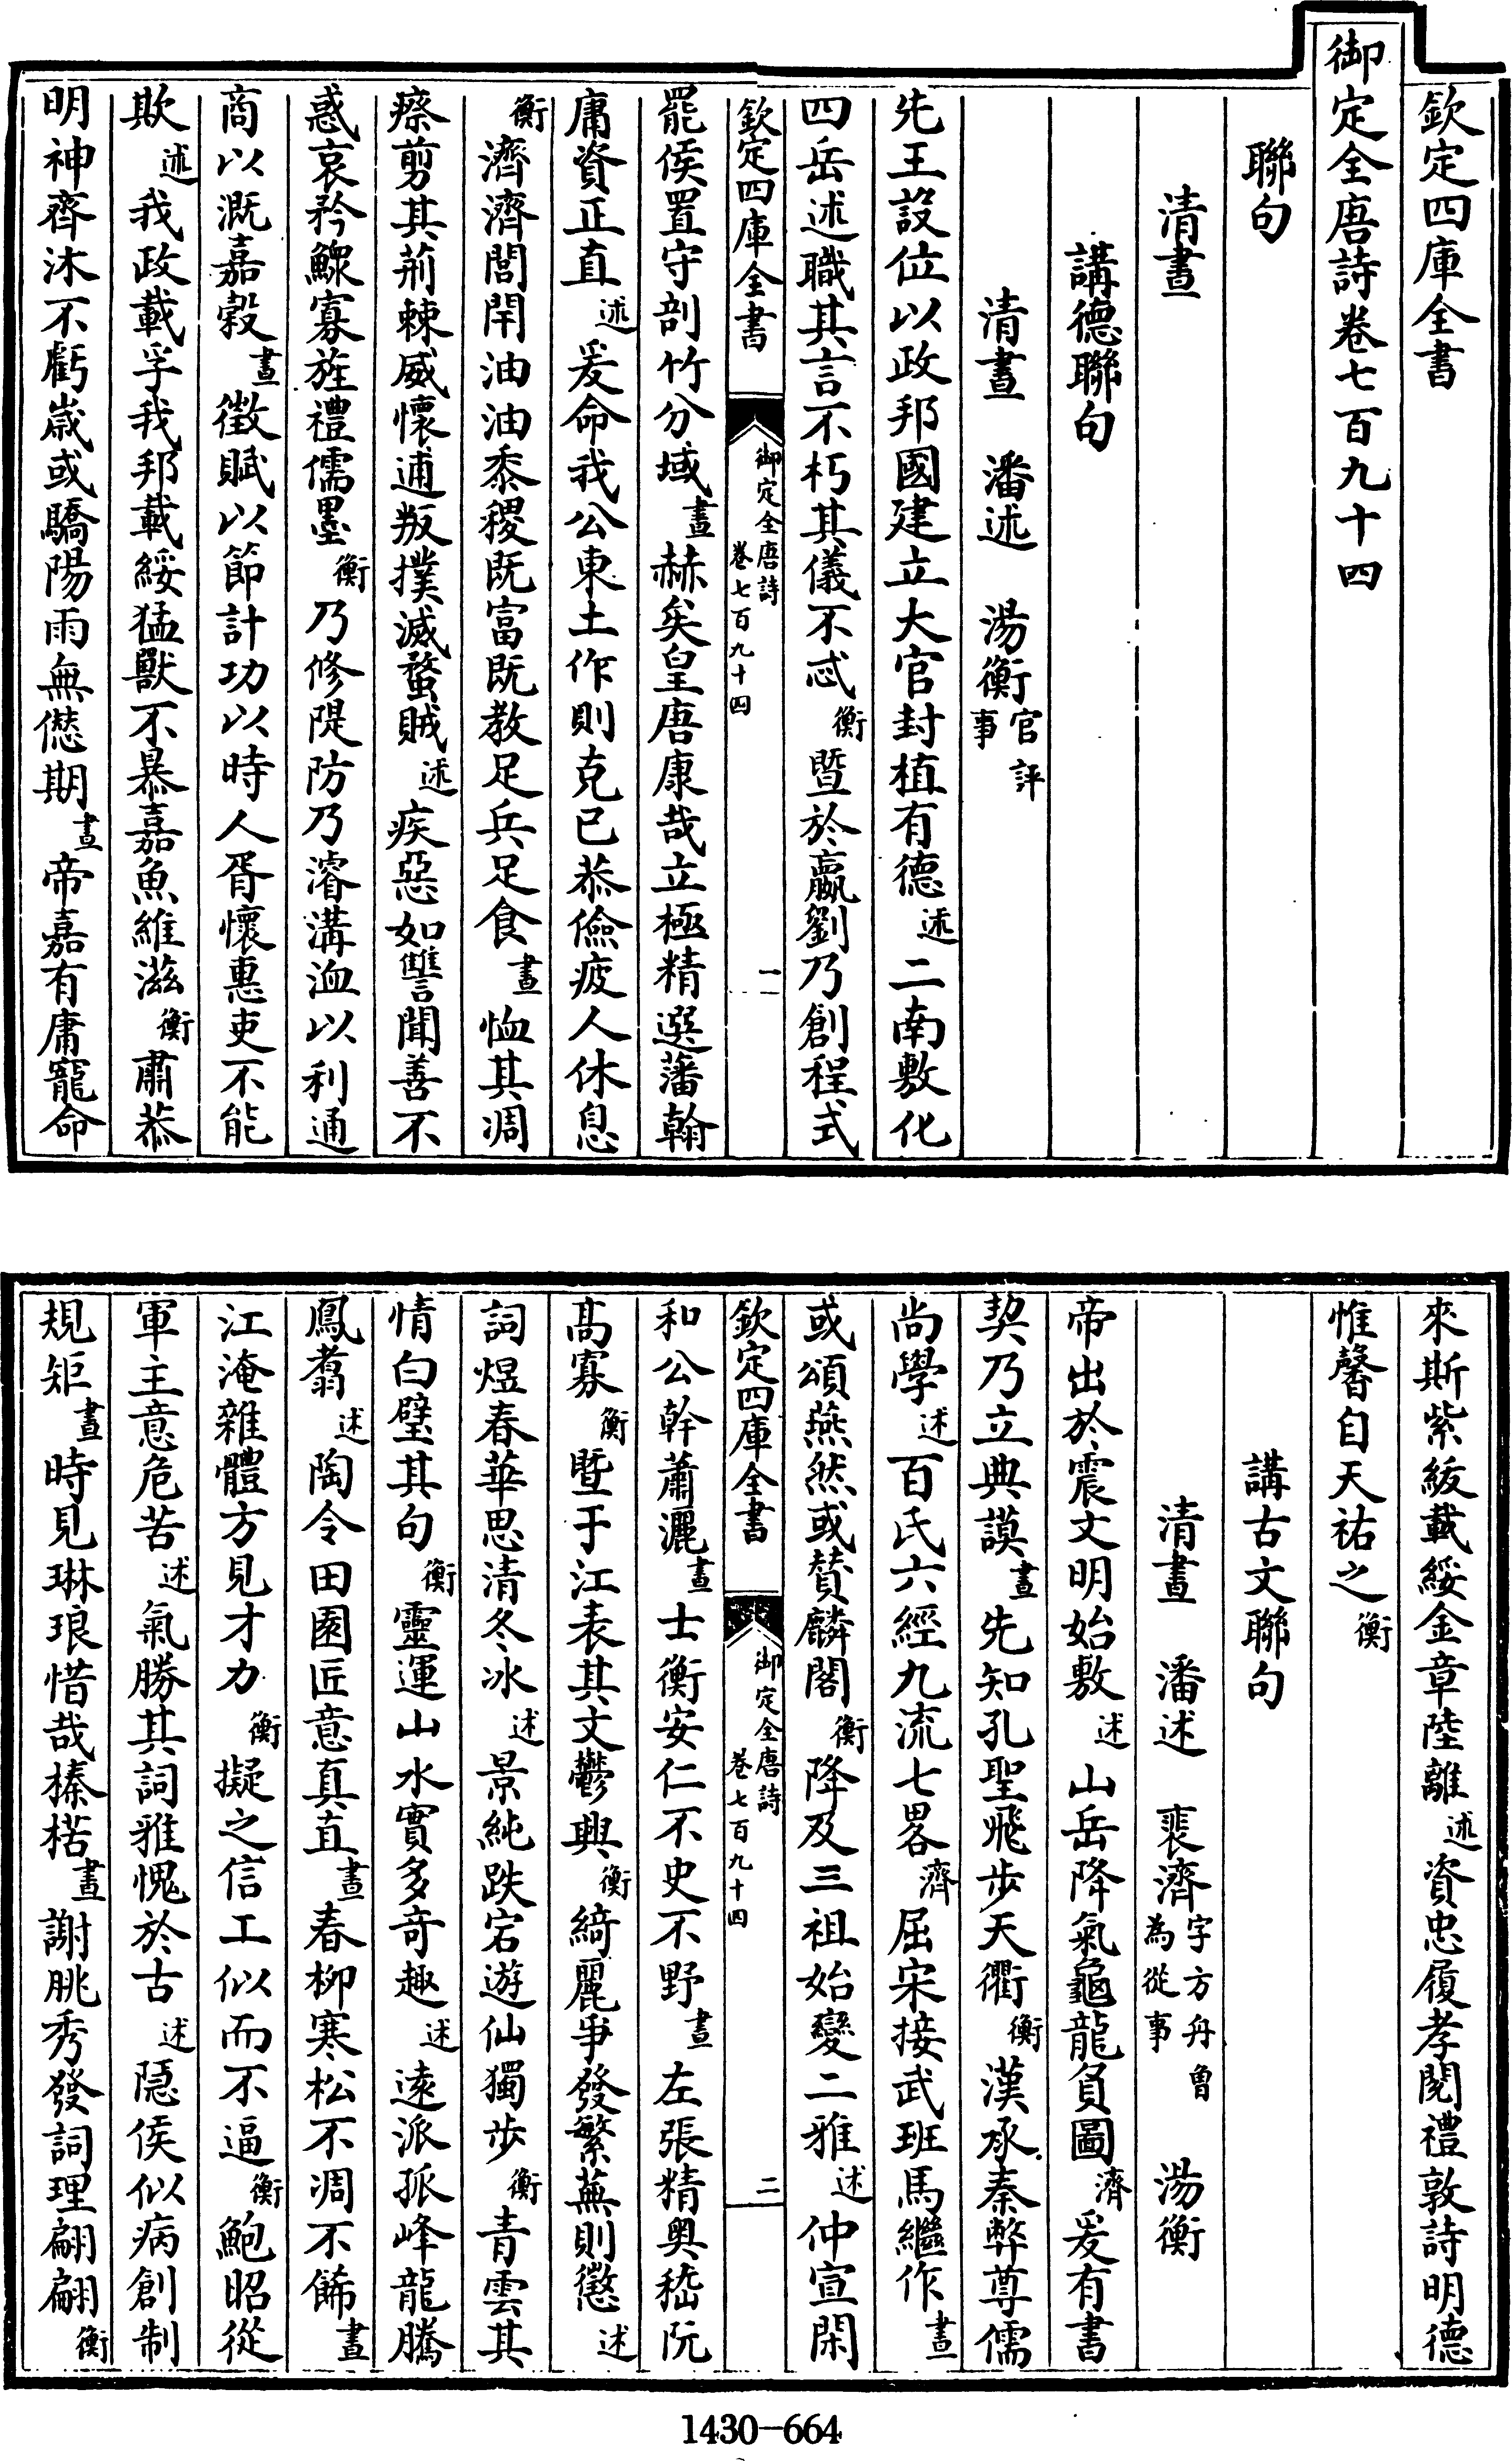 欽定四庫全書
御定全唐詩卷七百九十四
聯句
清晝
講德聯句
清晝　潘述　湯衡官評事
先王設位以政邦國建立大官封植有德述二南敷化
四岳述職其言不朽其儀不忒衡暨於嬴劉乃創程式
欽定四庫全書　御定全唐詩卷七百九十四　一
罷侯置守剖竹分域晝赫矣皇唐康哉立極精選藩翰
庸資正直述爰命我公東土作則克已恭儉疲人休息
衡濟濟閭閈油油黍稷既富既教足兵足食晝恤其凋
瘵剪其荊棘威懷逋叛撲滅蝥賊述疾惡如讐聞善不
惑哀矜鰥寡旌禮儒墨衡乃修隄防乃濬溝洫以利通
商以溉嘉穀晝徵賦以節計功以時人胥懷惠吏不能
欺述我政載孚我邦載綏猛獸不暴嘉魚維滋衡肅恭
明神齊沐不虧歲或驕陽雨無愆期晝帝嘉有庸寵命
來斯紫紱載綏金章陸離述資忠履孝閱禮敦詩明德
惟馨自天祐之衡
講古文聯句
清晝　潘述　裴濟字方舟曽為從事　湯衡
帝出於震文明始敷述山岳降氣龜龍負圖濟爰有書
契乃立典謨晝先知孔聖飛步天衢衡漢承秦弊尊儒
尚學述百氏六經九流七畧濟屈宋接武班馬繼作晝
或頌燕然或贊麟閣衡降及三祖始變二雅述仲宣閑
欽定四庫全書　御定全唐詩卷七百九十四　二
和公幹蕭灑晝士衡安仁不史不野晝左張精奧嵇阮
高寡衡暨于江表其文鬱興衡綺麗爭發繁蕪則懲述
詞煜春華思清冬冰述景純跌宕遊仙獨步衡青雲其
情白璧其句衡靈運山水實多奇趣述遠派孤峰龍騰
鳳翥述陶令田園匠意真直晝春柳寒松不凋不飾晝
江淹雜體方見才力衡擬之信工似而不逼衡鮑昭從
軍主意危苦述氣勝其詞雅愧於古述隱侯似病創制
規矩晝時見琳琅惜哉榛楛晝謝朓秀發詞理翩翩衡
1430-664